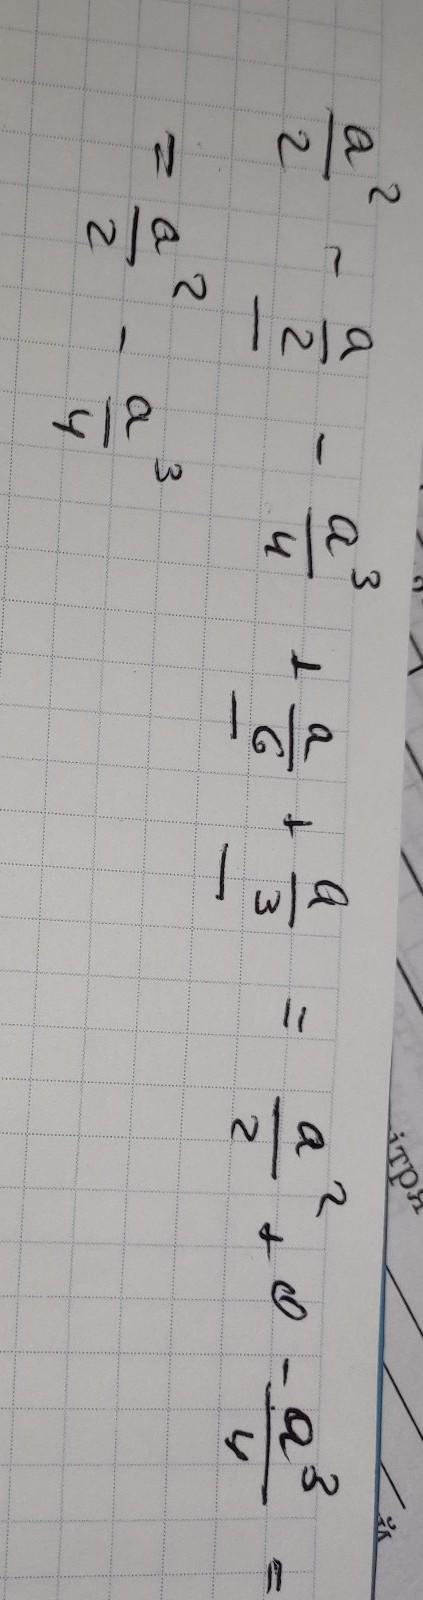 a²/2 - a/2 - a³/4 + a/6 + a/3 = a²/2 + 0 - a³/4 =
= a²/2 - a³/4
ітря